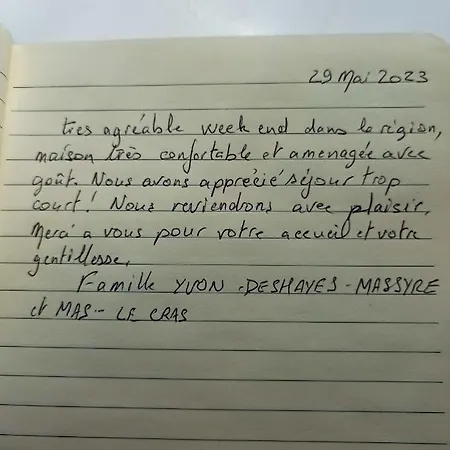 29 Mai 2023
très agréable week end dans la région,
maison très confortable et amenagée avec
goût. Nous avons apprécié séjour trop
court! Nous reviendrons avec plaisir.
Merci a vous pour votre accueil et votre
gentillesse.
Famille YVON - DESHAYES - MASSYRE
et MAS - LE CRAS